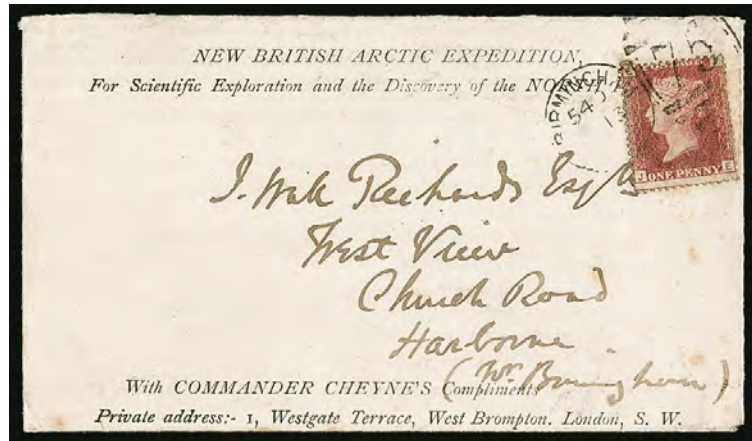 NEW BRITISH ARCTIC EXPEDITION,
For Scientific Exploration and the Discovery of the NORTH
BIRMINGH
54
ONE PENNY
J E
J. Wilk Richards Esqre
West View
Church Road
Harborne
(Nr. Birmingham)
With COMMANDER CHEYNE'S Compliments
Private address:- 1, Westgate Terrace, West Brompton. London, S. W.